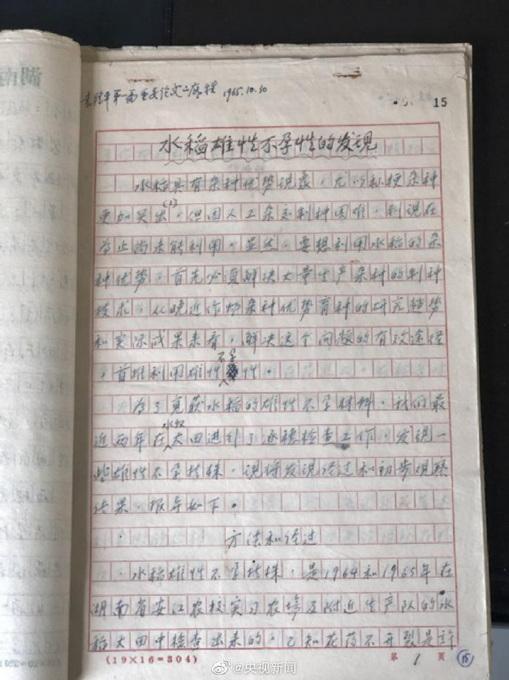 湖南
袁隆平第一篇重要论文二底稿 1965.10.30
15
水稻雄性不孕性的发现
水稻具有杂种优势现象,尤以籼粳杂种
更加突出,但因人工杂交制种困难,到现在
为止尚未能利用。显然,要想利用水稻的杂
种优势,首先必须解决大量生产杂种的制种
技术,从晚近作物杂种优势育种的研究趋势
和实际成果来看,解决这个问题的有效途径
,首推利用雄性不孕性。
为了克获水稻的雄性不孕材料,我们最
近两年在水稻大田进行了逐穗检查工作,发现一
些雄性不孕植株,现将发现经过和初步观察
结果,报导如下。
方法和经过
水稻雄性不孕植株,是1964和1965年在
湖南省安江农校实习农场及附近生产队的水
稻大田中检查出来的。已知花药不开裂是许
(19×16=304)
第 1 页
15
@央视新闻